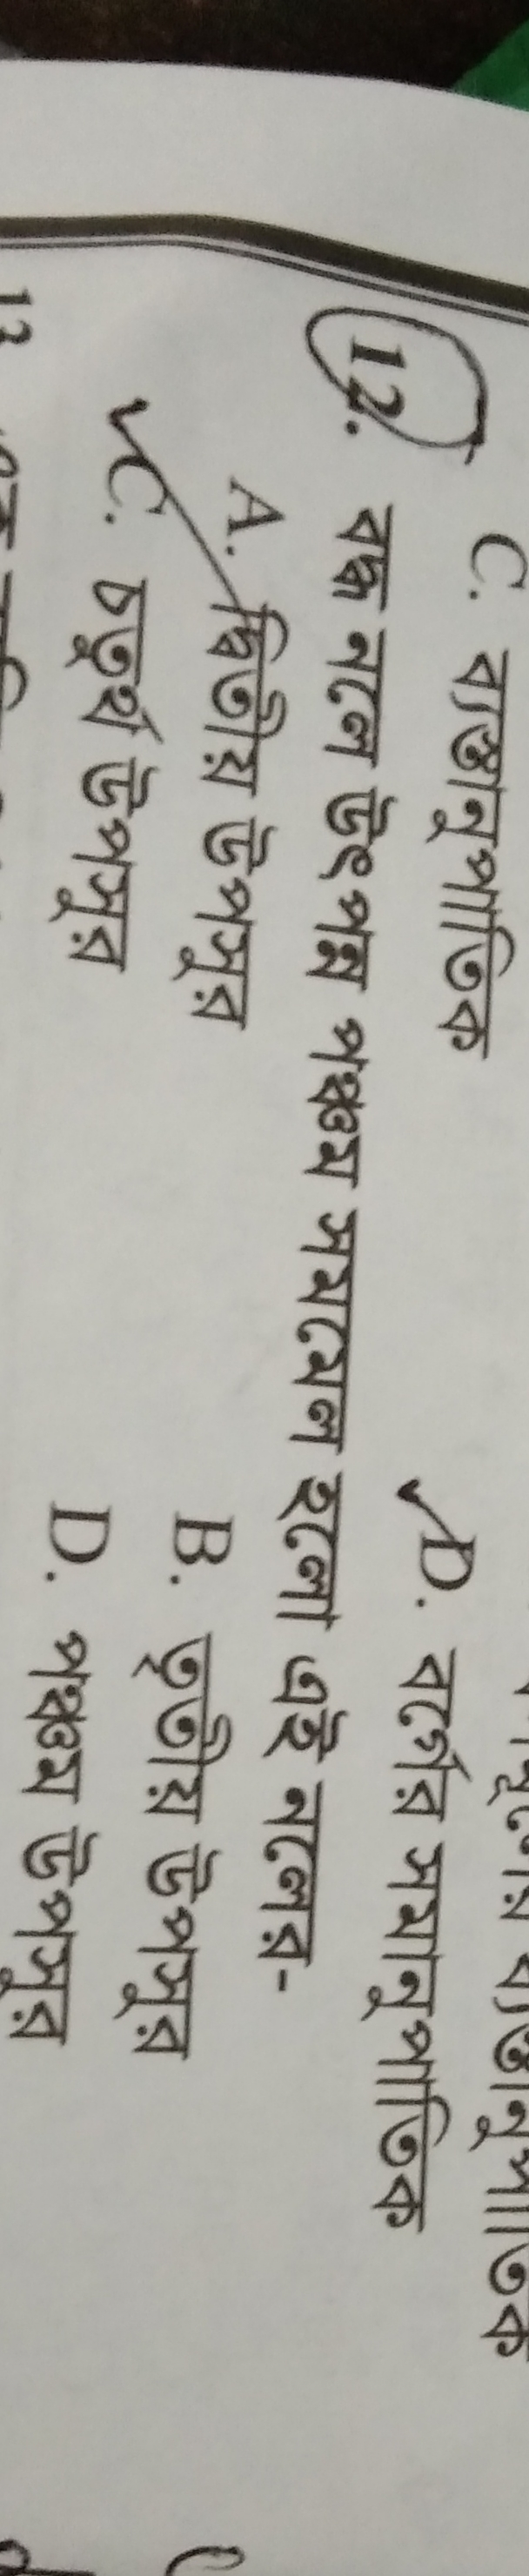 C. ব্যস্তানুপাতিক D. বর্গের সমানুপাতিক
12. বদ্ধ নলে উৎপন্ন পঞ্চম সমমেল হলো এই নলের-
A. দ্বিতীয় উপসুর B. তৃতীয় উপসুর
C. চতুর্থ উপসুর D. পঞ্চম উপসুর
13.